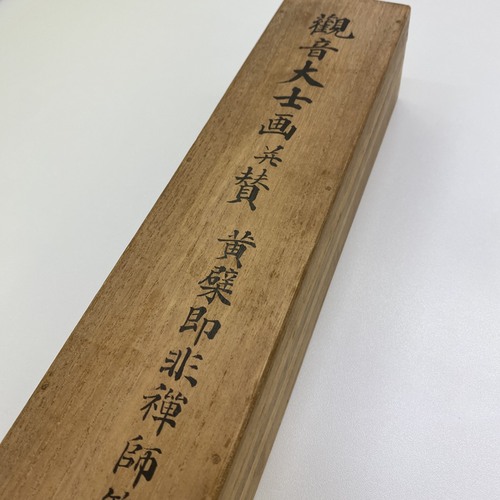 觀音大士画并賛 黄檗即非禅師